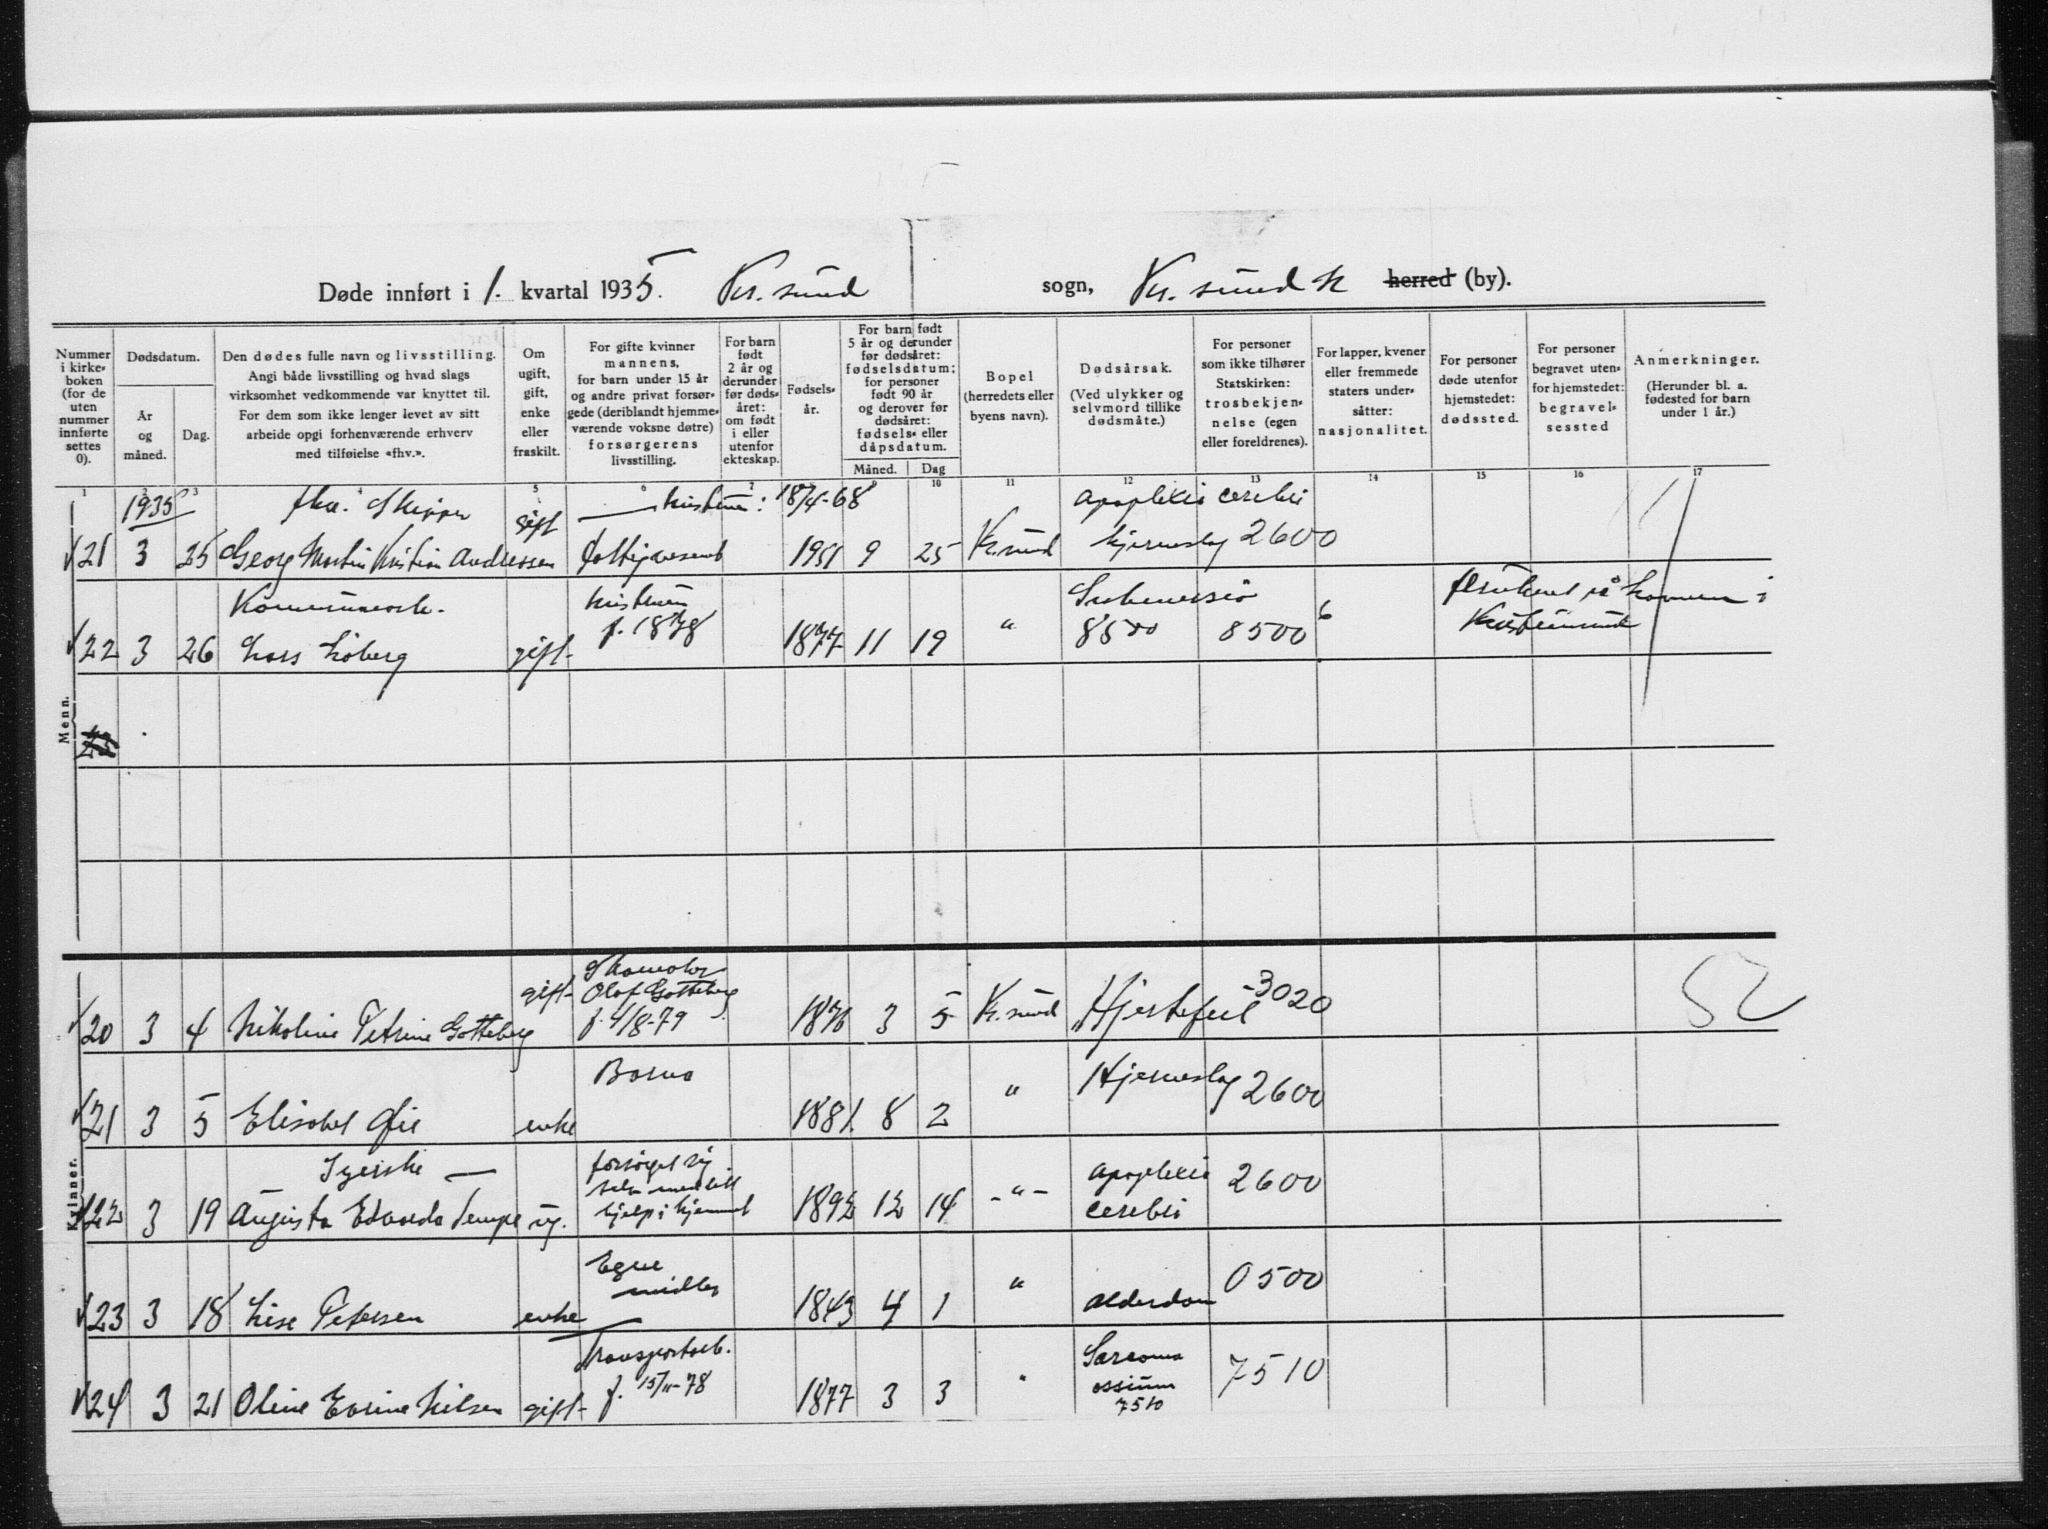 Døde innført i 1. kvartal 1935. Kr.sund sogn, Kr.sund N herred (by).
Nummer i kirke-boken (for de uten nummer innførte settes 0).
Dødsdatum.
År og måned.
Dag.
Den dødes fulle navn og livsstilling.
Angi både livsstilling og hvad slags
virksomhet vedkommende var knyttet til.
For dem som ikke lenger levet av sitt
arbeide opgi forhenværende erhverv
med tilføielse «fhv.».
Om
ugift,
gift,
enke
eller
fraskilt.
For gifte kvinner
mannens,
for barn under 15 år
og andre privat forsør-
gede (deriblandt hjemme-
værende voksne døtre)
forsørgerens
livsstilling.
For barn
født
2 år og
derunder
før døds-
året:
om født
i eller
utenfor
ekteskap.
Fødsels-
år.
For barn født
5 år og derunder
før dødsåret:
fødselsdatum;
for personer
født 90 år
og derover før
dødsåret:
fødsels- eller
dåpsdatum.
Måned. Dag
Bopel
(herredets eller
byens navn).
Dødsårsak.
(Ved ulykker og
selvmord tillike
dødsmåte.)
For personer
som ikke tilhører
Statskirken:
trosbekjen-
nelse (egen
eller foreldrenes).
For lapper, kvener
eller fremmede
staters under-
såtter:
nasjonalitet.
For personer
døde utenfor
hjemstedet:
dødssted.
For personer
begravet uten-
for hjemstedet:
begravel-
sessted
Anmerkninger.
(Herunder bl. a.
fødested for barn
under 1 år.)
1 2 3 4 5 6 7 8 9 10 11 12 13 14 15 16 17
Menn.
1935 fhv. Skipper gift hustruen: 18/4-68 apoplexi cerebri
21 3 25 Georg Martin Kristian Andreassen 1851 9 25 Kr.sund hjerneslag 2600
Kommunearb. hustruen Submersio i
22 3 26 Lars Loberg gift f. 1878 1877 11 19 " 8500 8500 6 Kristiansund
23
Kvinner.
20 3 4 Nikoline Petrine Gotteberg gift Skomaker Olaf Gotteberg f. 4/8-79 1876 3 5 Kr.sund Hjertefeil 3020
21 3 5 Elisabet Øie enke Barna 1881 8 2 " Hjerneslag 2600
Syerske — forsørget sig selv med litt hjelp i hjemmet apoplexia 2600
22 3 19 Augusta Edvarda Tempe ug. 1892 12 14 -"- cerebri
23 3 18 Lise Petersen enke Egne midler 1843 4 1 " alderdom 0500
24 3 21 Oline Evrine Nilsen gift Transportarb. f. 15/11-78 1877 3 3 " Sarcoma ossium 7510 7510
52